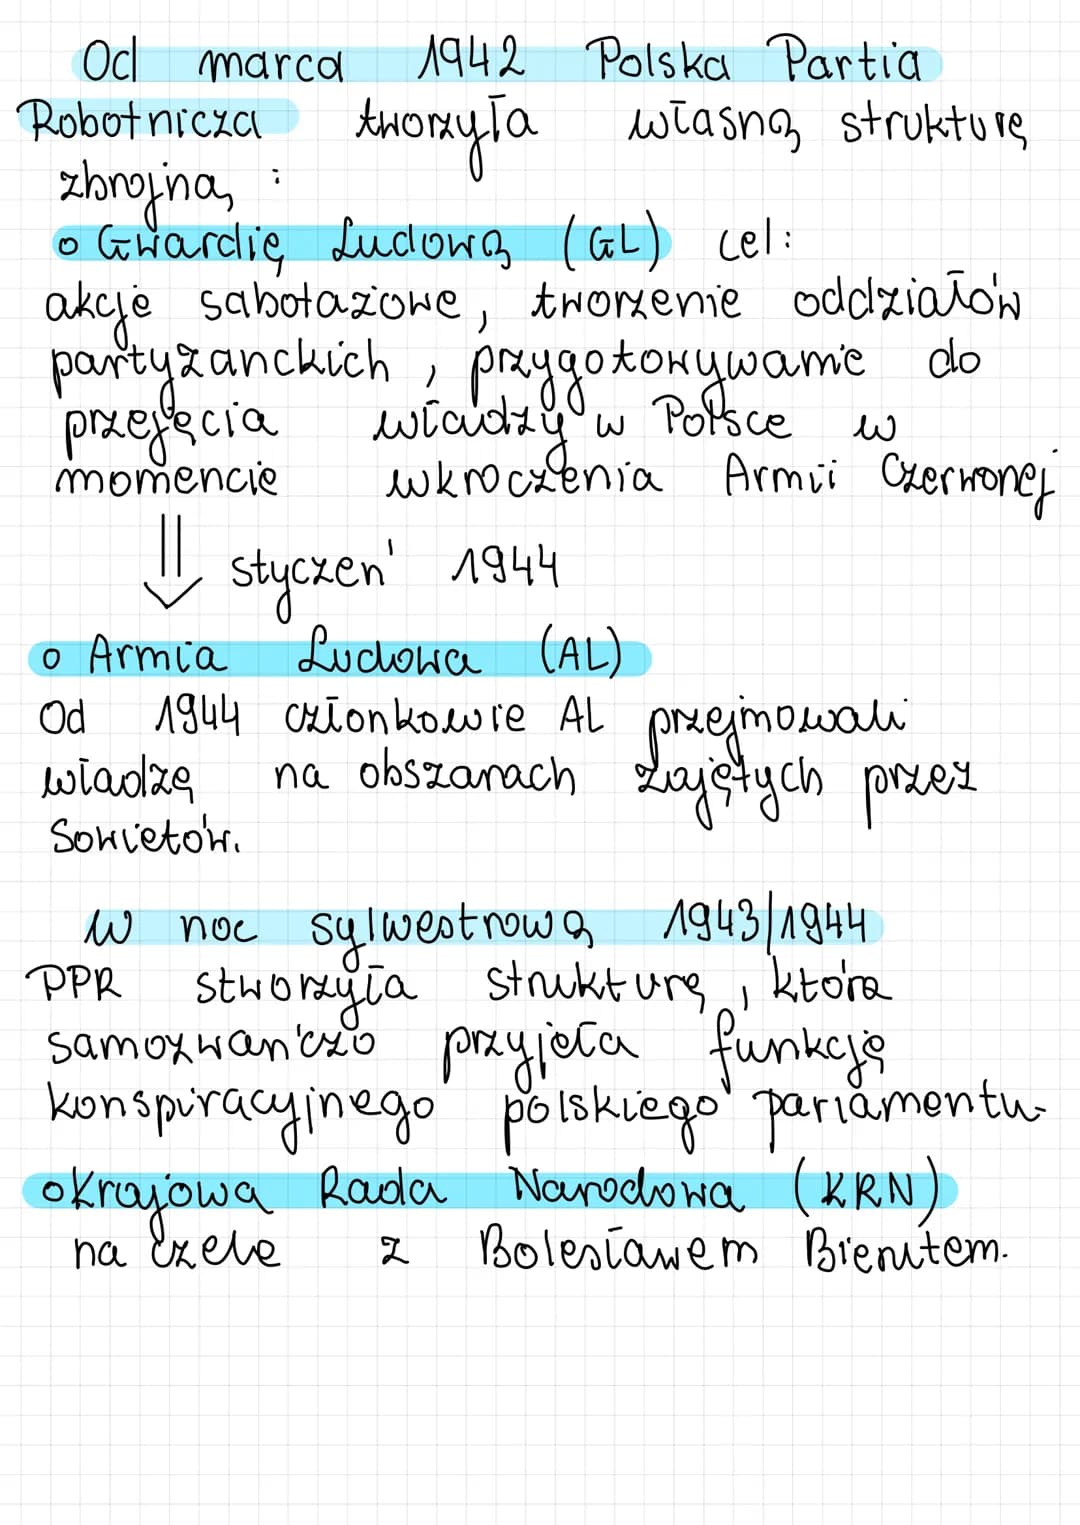 Od marca 1942 Polska Partia
Robotnicza tworzyła własną strukturę
zbrojną :
o Gwardię Ludową (GL) cel:
akcje sabotażowe, tworzenie oddziałów
partyzanckich, przygotowywanie do
przejęcia władzy w Polsce w
momencie wkroczenia Armii Czerwonej
⇓ styczeń 1944
o Armia Ludowa (AL)
Od 1944 członkowie AL przejmowali
władzę na obszarach zajętych przez
Sowietów.
W noc sylwestrową 1943/1944
PPR stworzyła strukturę, która
samozwańczo przyjęła funkcję
konspiracyjnego polskiego parlamentu-
o Krajowa Rada Narodowa (KRN)
na czele z Bolesławem Bierutem.